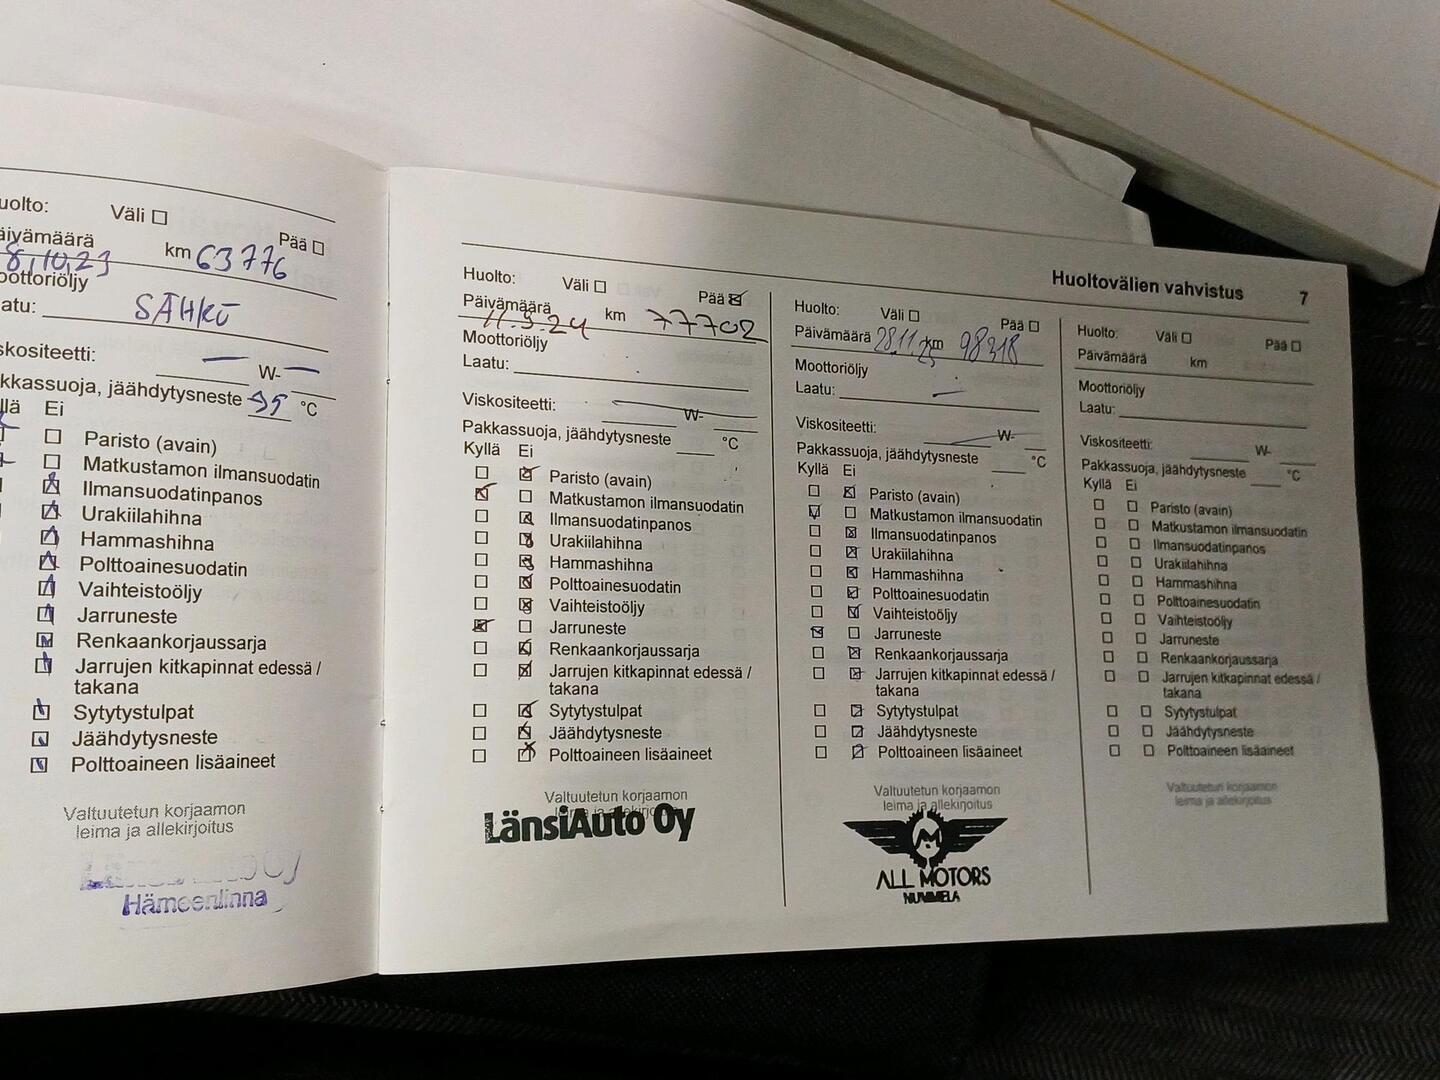 uolto: Väli Pää
äivämäärä km 63776
8.10.23
oottoriöljy
atu: SÄHKÖ
skositeetti: W-
kkassuoja, jäähdytysneste -35 °C
llä Ei
Paristo (avain)
Matkustamon ilmansuodatin
Ilmansuodatinpanos
Urakiilahihna
Hammashihna
Polttoainesuodatin
Vaihteistoöljy
Jarruneste
Renkaankorjaussarja
Jarrujen kitkapinnat edessä /
takana
Sytytystulpat
Jäähdytysneste
Polttoaineen lisäaineet
Valtuutetun korjaamon
leima ja allekirjoitus
Hämeenlinna
Huoltovälien vahvistus 7
Huolto: Väli Pää
Päivämäärä km 77702
11.9.24
Moottoriöljy
Laatu:
Viskositeetti: W-
Pakkassuoja, jäähdytysneste °C
Kyllä Ei
Paristo (avain)
Matkustamon ilmansuodatin
Ilmansuodatinpanos
Urakiilahihna
Hammashihna
Polttoainesuodatin
Vaihteistoöljy
Jarruneste
Renkaankorjaussarja
Jarrujen kitkapinnat edessä /
takana
Sytytystulpat
Jäähdytysneste
Polttoaineen lisäaineet
Valtuutetun korjaamon
leima ja allekirjoitus
LänsiAuto Oy
Huolto: Väli Pää
Päivämäärä 28.11.25 km 98318
Moottoriöljy
Laatu:
Viskositeetti: W-
Pakkassuoja, jäähdytysneste °C
Kyllä Ei
Paristo (avain)
Matkustamon ilmansuodatin
Ilmansuodatinpanos
Urakiilahihna
Hammashihna
Polttoainesuodatin
Vaihteistoöljy
Jarruneste
Renkaankorjaussarja
Jarrujen kitkapinnat edessä /
takana
Sytytystulpat
Jäähdytysneste
Polttoaineen lisäaineet
Valtuutetun korjaamon
leima ja allekirjoitus
M
ALL MOTORS
NUMMELA
Huolto: Väli Pää
Päivämäärä km
Moottoriöljy
Laatu:
Viskositeetti: W-
Pakkassuoja, jäähdytysneste °C
Kyllä Ei
Paristo (avain)
Matkustamon ilmansuodatin
Ilmansuodatinpanos
Urakiilahihna
Hammashihna
Polttoainesuodatin
Vaihteistoöljy
Jarruneste
Renkaankorjaussarja
Jarrujen kitkapinnat edessä /
takana
Sytytystulpat
Jäähdytysneste
Polttoaineen lisäaineet
Valtuutetun korjaamon
leima ja allekirjoitus